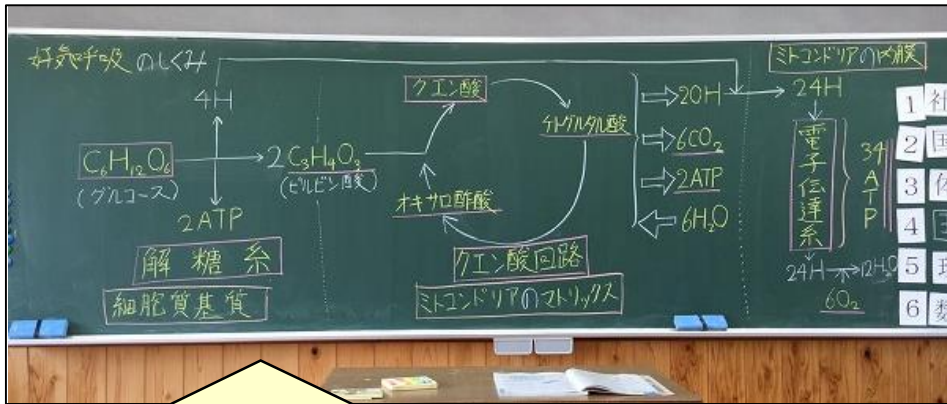 好気呼吸 のしくみ
4H
C₆H₁₂O₆
(グルコース)
2ATP
解糖系
細胞質基質
2C₃H₄O₃
(ピルビン酸)
クエン酸
ケトグルタル酸
オキサロ酢酸
クエン酸回路
ミトコンドリアのマトリックス
20H
6CO₂
2ATP
6H₂O
ミトコンドリアの内膜
24H
電子伝達系
34ATP
24H
12H₂O
6O₂
1 社
2 国
3 体
4
5 理
6 数